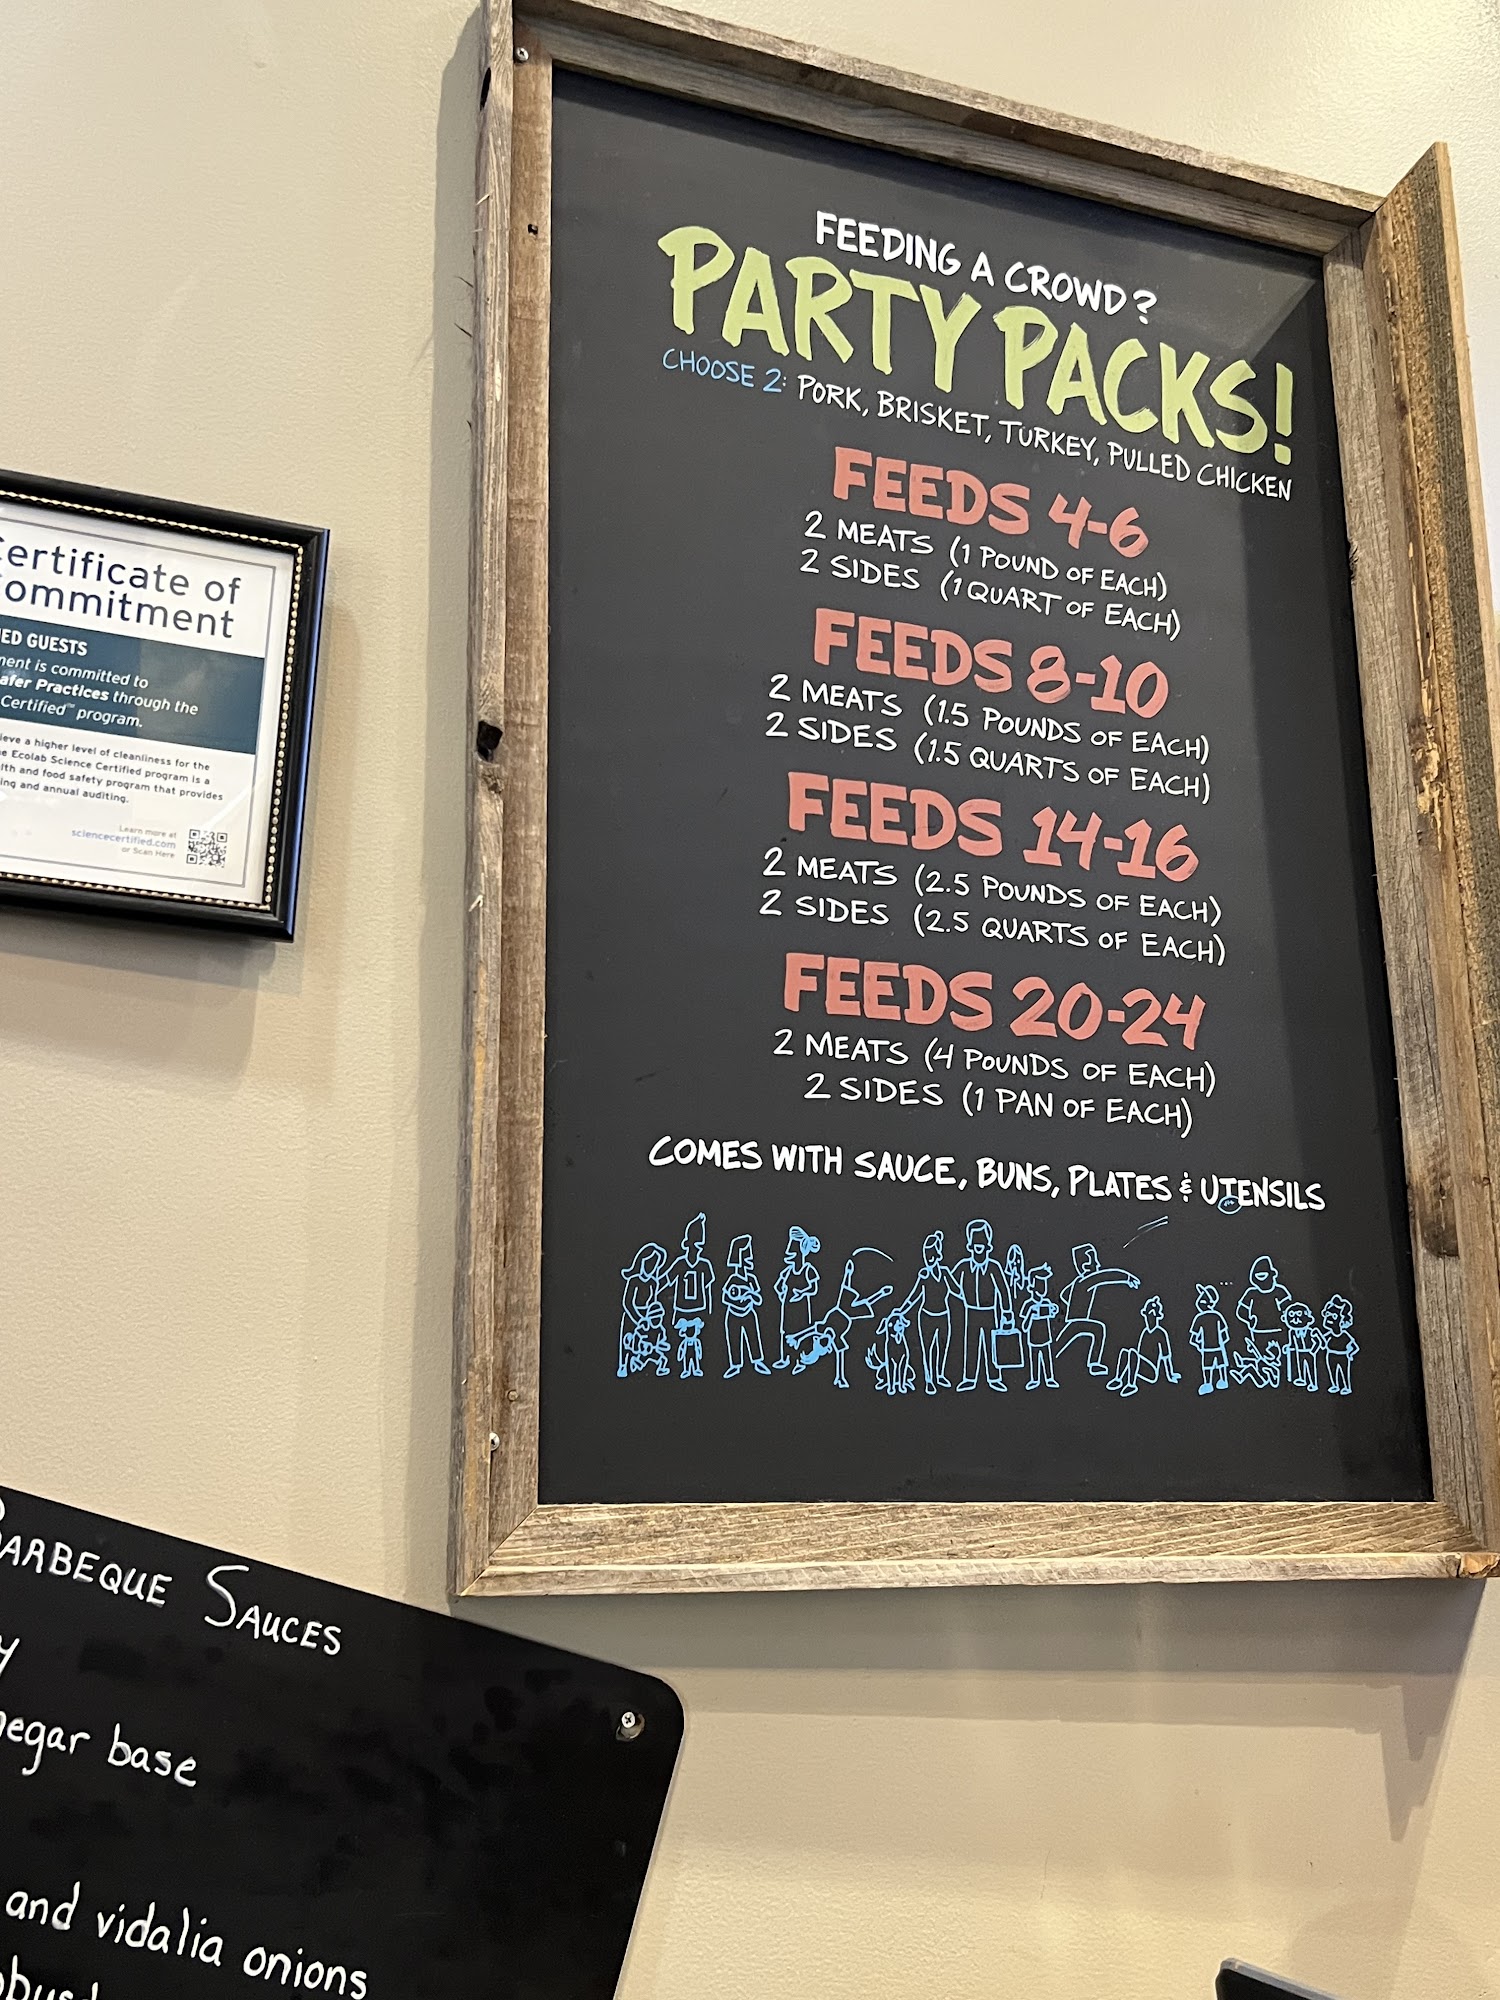 FEEDING A CROWD?
PARTY PACKS!
CHOOSE 2: PORK, BRISKET, TURKEY, PULLED CHICKEN
FEEDS 4-6
2 MEATS (1 POUND OF EACH)
2 SIDES (1 QUART OF EACH)
FEEDS 8-10
2 MEATS (1.5 POUNDS OF EACH)
2 SIDES (1.5 QUARTS OF EACH)
FEEDS 14-16
2 MEATS (2.5 POUNDS OF EACH)
2 SIDES (2.5 QUARTS OF EACH)
FEEDS 20-24
2 MEATS (4 POUNDS OF EACH)
2 SIDES (1 PAN OF EACH)
COMES WITH SAUCE, BUNS, PLATES & UTENSILS
Certificate of
Commitment
GUESTS
is committed to
Safer Practices through the
Certified™ program.
a higher level of cleanliness for the
Ecolab Science Certified program is a
and food safety program that provides
and annual auditing.
Learn more at
sciencecertified.com
or Scan Here
BARBEQUE SAUCES
base
and vidalia onions